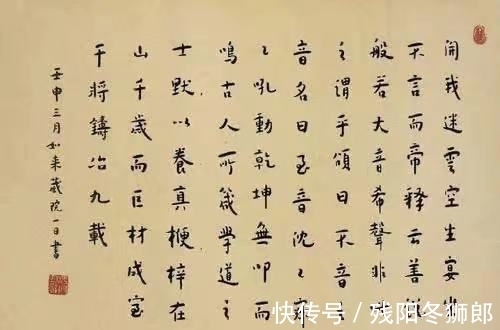 開我迷雲空生宴坐
不言而帝釋云善
般若大音希聲非
之謂乎頌曰天音
音名曰至音沈々寂
々吼動乾坤無叩而
鳴古人所箴學道之
士默以養真楩梓在
山千歲而巨材成室
干將鑄冶九載
壬申三月如來藏院一日書
快传号 / 残阳冬狮郎